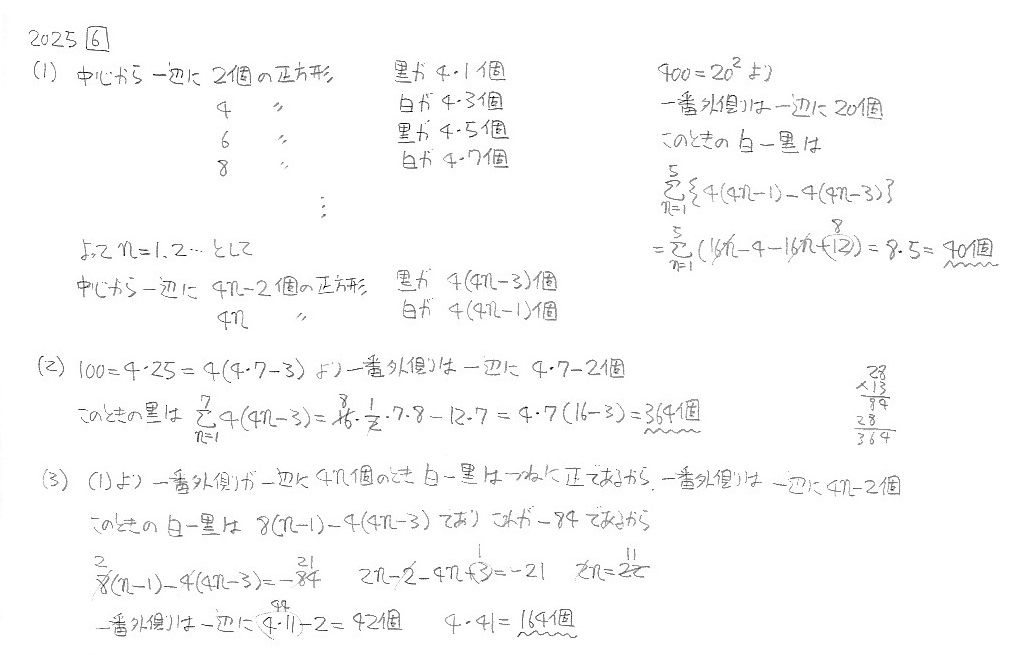 2025 6
(1) 中心から一辺に 2個の正方形 黒が 4・1個
4 〃 白が 4・3個
6 〃 黒が 4・5個
8 〃 白が 4・7個
⋮
よって n=1,2…として
中心から一辺に 4n-2個の正方形 黒が 4(4n-3)個
4n 〃 白が 4(4n-1)個
400=20²より
一番外側は一辺に20個
このときの白-黒は
5
Σ{4(4n-1)-4(4n-3)}
n=1
5 8
=Σ(16n-4-16n+12)=8・5=40個
n=1
(2) 100=4・25=4(4・7-3)より一番外側は一辺に 4・7-2個
7 8
このときの黒は Σ4(4n-3)=16・1/2・7・8-12・7=4・7(16-3)=364個
n=1
28
×13
84
28
364
(3) (1)より一番外側が一辺に4n個のとき白-黒はつねに正であるから、一番外側は一辺に4n-2個
このときの白-黒は 8(n-1)-4(4n-3)であり これが-84であるから
2 21 1 11
8(n-1)-4(4n-3)=-84 2n-2-4n+3=-21 2n=22
44
一番外側は一辺に 4・11-2=42個 4・41=164個